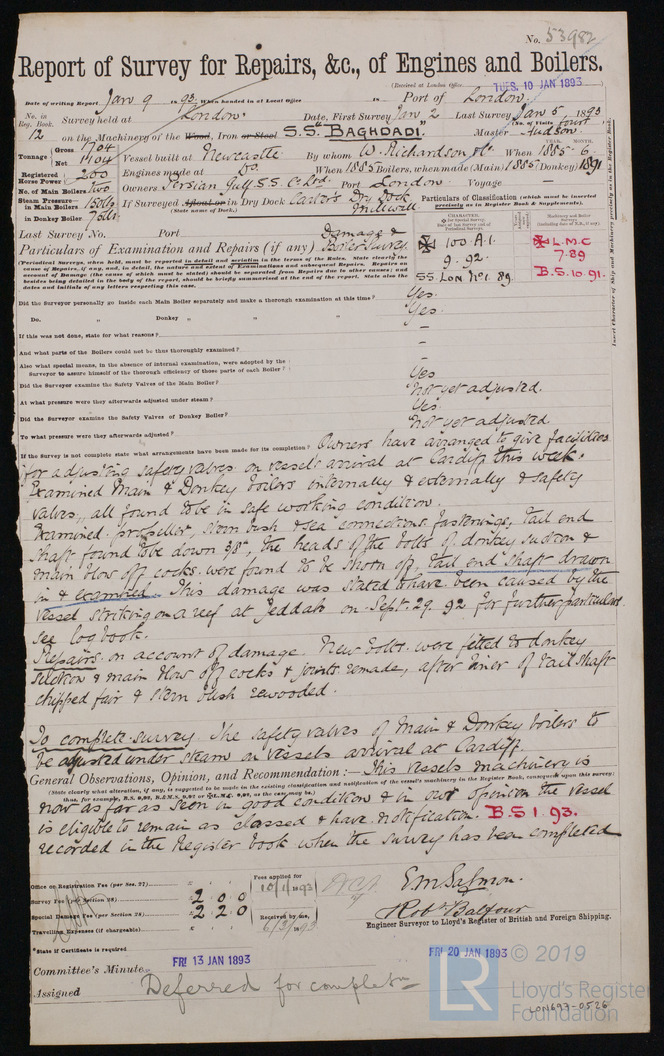 No. 53982
Report of Survey for Repairs, &c., of Engines and Boilers.
(Received at London Office TUES. 10 JAN 1893
Date of writing Report Jan 9 1893 When handed in at Local Office Port of London
No. in Reg. Book. Survey held at London Date, First Survey Jan 2 Last Survey Jan 5 1893
(No. of Visits four)
12 on the Machinery of the Wood, Iron or Steel S.S. "BAGHDADI" Master Hudson
Tonnage Gross 1704 Net 1404
Vessel built at Newcastle By whom W. Richardson &c When YEAR. 1885 MONTH. 6
Registered Horse Power 200 Engines made at Do. When 1885 Boilers, when made (Main) 1885 (Donkey) 1891
No. of Main Boilers two Owners Persian Gulf S.S. Co Lrd. Port London Voyage —
Steam Pressure in Main Boilers 150lb If Surveyed Afloat or in Dry Dock Dry Dock Millwall
(State name of Dock.)
in Donkey Boiler 70lb
Particulars of Classification (which must be inserted precisely as in Register Book & Supplements).
Last Survey No. Port
Particulars of Examination and Repairs (if any) Damage & Boiler Survey
CHARACTER.
100.A.1.
9.92.
SS. Lon No1. 89.
L.M.C
7.89
B.S.10.91.
(Periodical Surveys, when held, must be reported in detail and seriatim in the terms of the Rules. State clearly the cause of Repairs, if any, and, in detail, the nature and extent of Examinations and subsequent Repairs. Repairs on account of Damage (the cause of which must be stated) should be separated from Repairs due to other causes; and besides being detailed in the body of the report, should be briefly summarised at the end of the report. State also the dates and initials of any letters respecting this case.
Did the Surveyor personally go inside each Main Boiler separately and make a thorough examination at this time? Yes.
Do. " Donkey " " " Yes.
If this was not done, state for what reasons? –
And what parts of the Boilers could not be thus thoroughly examined? –
Also what special means, in the absence of internal examination, were adopted by the
Surveyor to assure himself of the thorough efficiency of those parts of each Boiler? –
Did the Surveyor examine the Safety Valves of the Main Boiler? Yes
At what pressure were they afterwards adjusted under steam? Not yet adjusted.
Did the Surveyor examine the Safety Valves of Donkey Boiler? Yes.
To what pressure were they afterwards adjusted? Not yet adjusted.
If the Survey is not complete state what arrangements have been made for its completion? Owners have arranged to give facilities
for adjusting safety valves on vessel's arrival at Cardiff this week.
Examined Main & Donkey boilers internally & externally & safety
valves, all found to be in safe working condition.
Examined propeller, stern bush & sea connections fastenings, tail end
shaft found to be down 3/8", the heads of the bolts of donkey suction &
main blow off cocks were found to be shorn off, tail end shaft drawn
in & examined. This damage was stated to have been caused by the
vessel striking on a reef at Jeddah on Sept. 29. 92 for further particulars
see log book.
Repairs on account of damage. New bolts were fitted to donkey
suction & main blow off cocks & joints remade, after liner of tail shaft
chipped fair & stern bush rewooded.
To complete survey. The safety valves of Main & Donkey boilers to
be adjusted under steam on vessels arrival at Cardiff.
General Observations, Opinion, and Recommendation:— This vessels machinery is
(State clearly what alteration, if any, is suggested to be made in the existing classification and notification of the vessel's machinery in the Register Book, consequent upon this survey;
now as far as seen in good condition & in our opinion the vessel
is eligible to remain as classed & have notification. B.S 1.93.
recorded in the Register book when the survey has been completed
Office on Registration Fee (per Sec. 27)
Fees applied for
10/1/1893
Survey Fee (per Section 28) 2 0 0
Special Damage Fee (per Section 28) 2 2 0
Received by me,
Travelling Expenses (if chargeable) 6/3/1893
E M Salmon.
Robt Balfour
Engineer Surveyor to Lloyd's Register of British and Foreign Shipping.
*State if Certificate is required
FRI 13 JAN 1893 FRI 20 JAN 1893
Committee's Minute
Assigned Deferred for completn
LR © 2019
Lloyd's Register
Foundation
LON697-0526